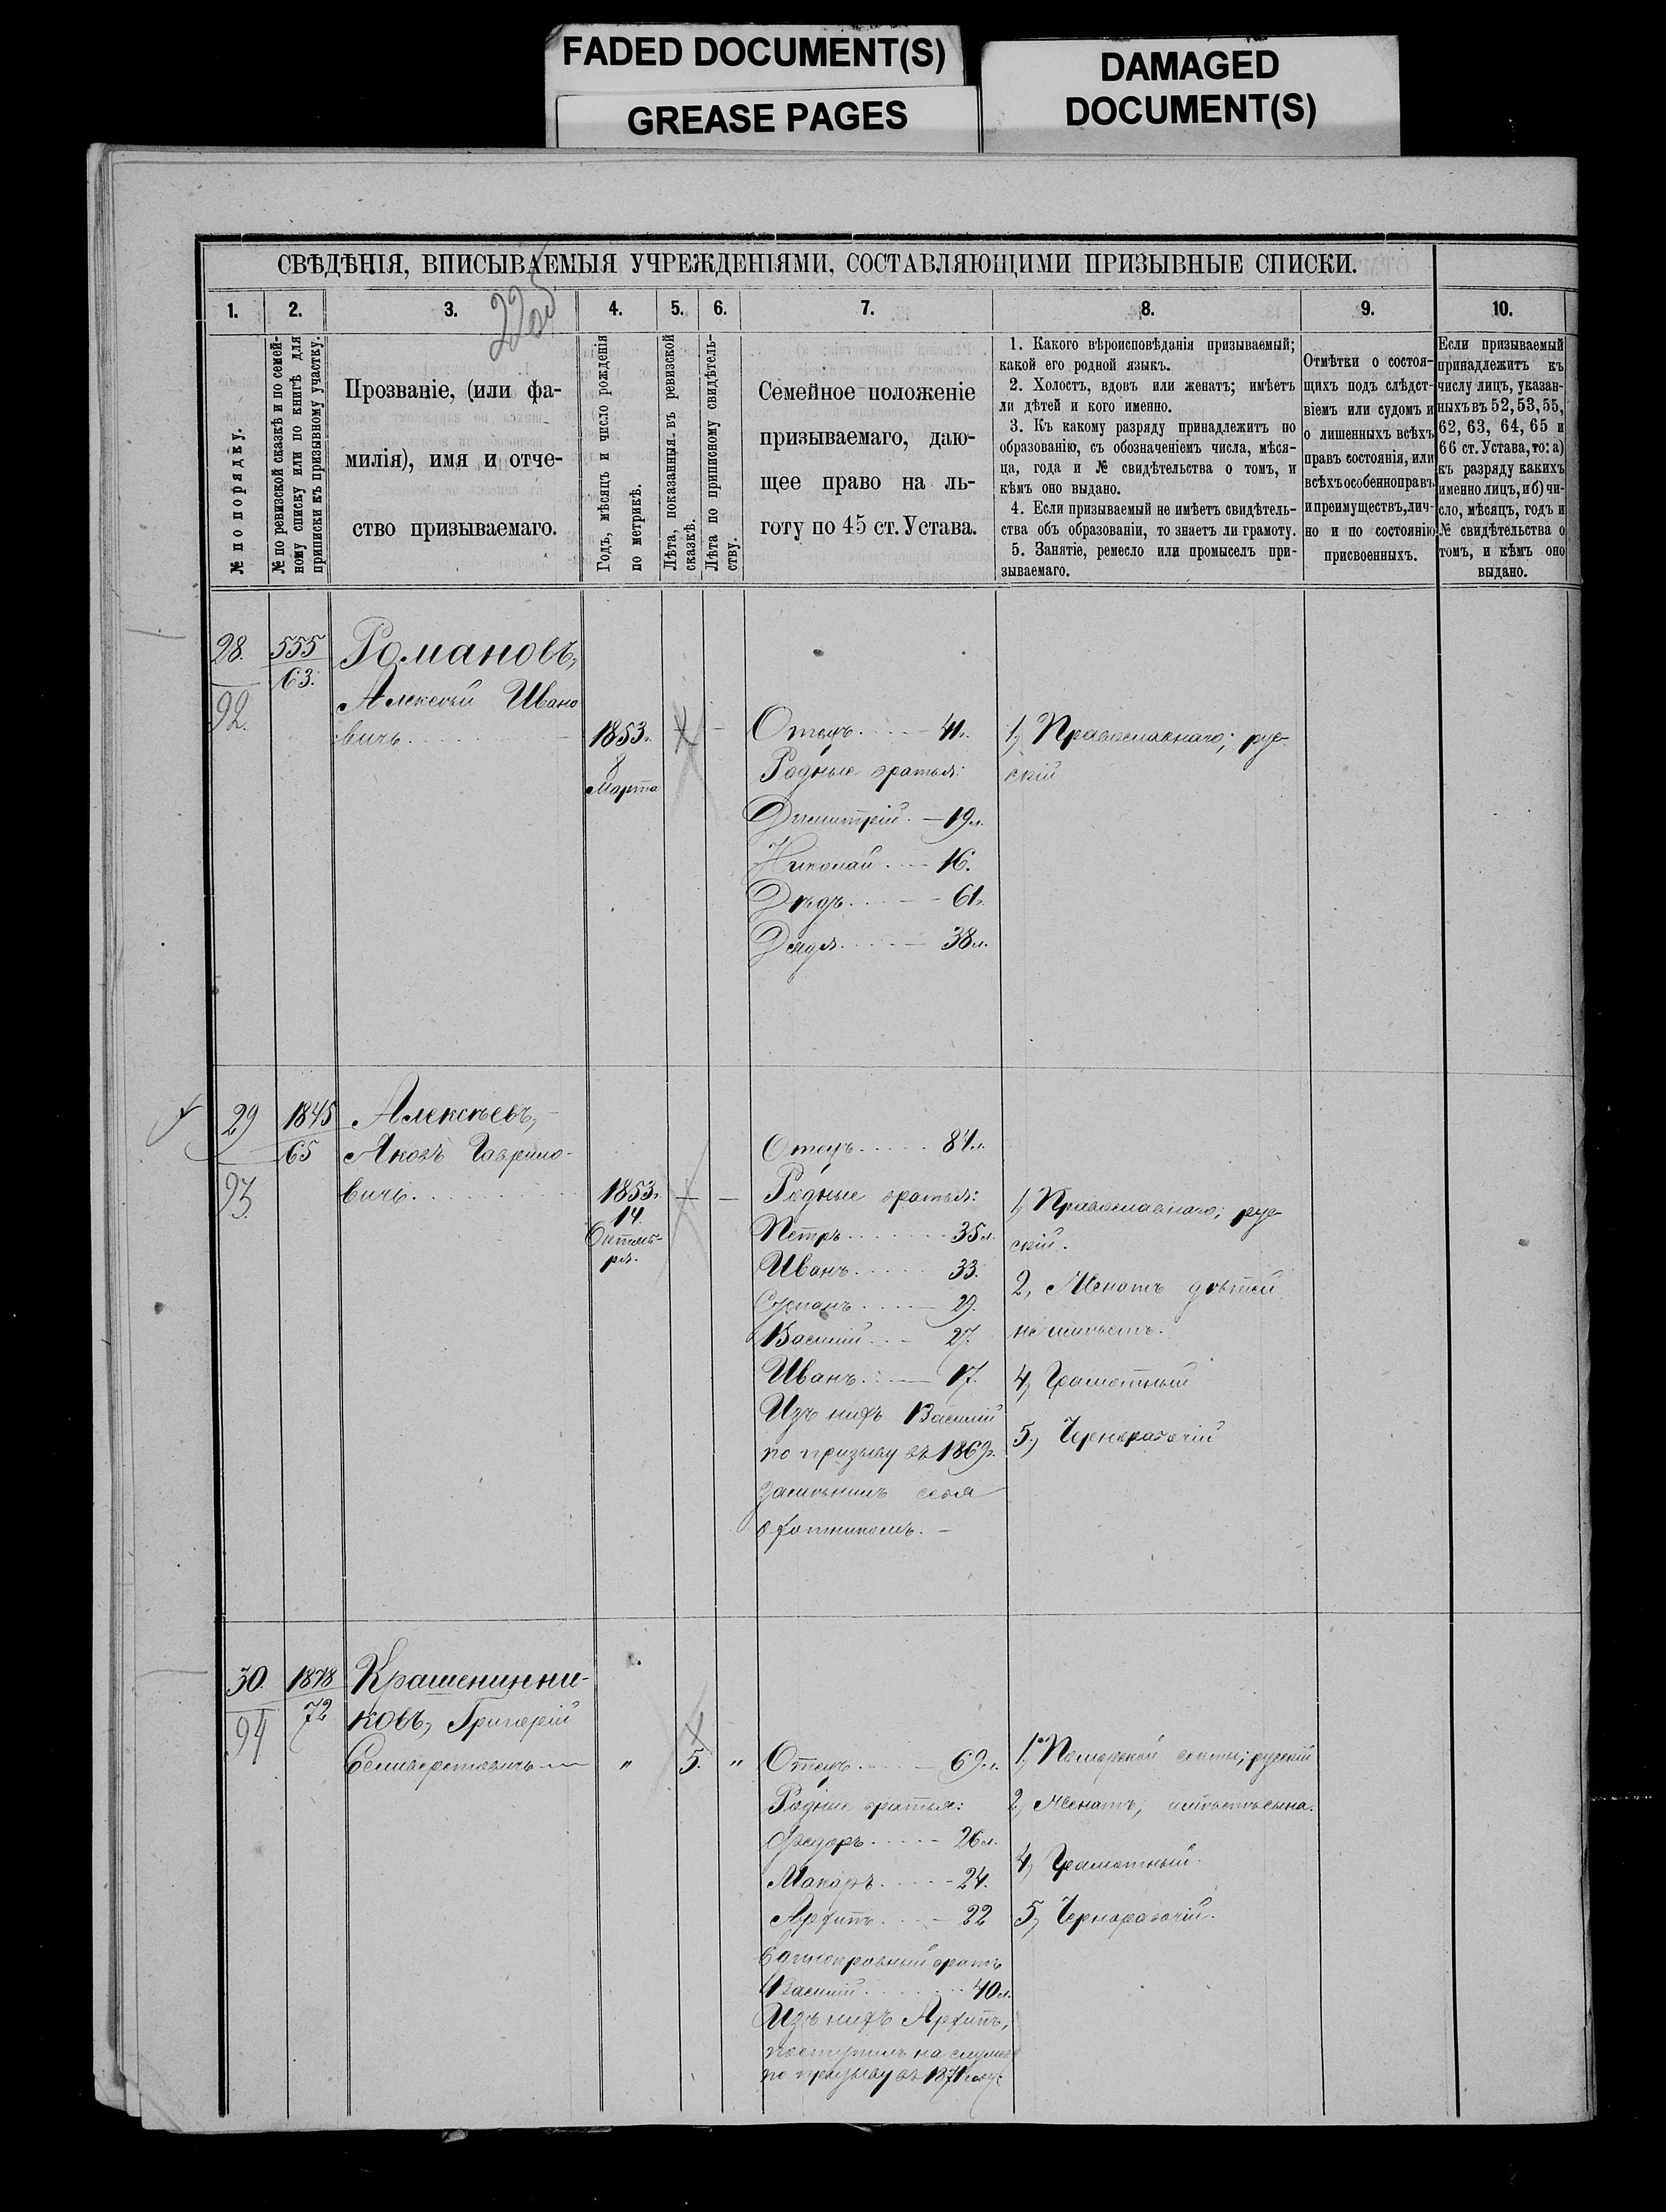 FADED DOCUMENT(S)
GREASE PAGES
DAMAGED
DOCUMENT(S)
СВѢДѢНІЯ, ВПИСЫВАЕМЫЯ УЧРЕЖДЕНІЯМИ, СОСТАВЛЯЮЩИМИ ПРИЗЫВНЫЕ СПИСКИ.
1.
2.
3.
4.
5.
6.
7.
8.
9.
10.
№ по порядку.
№ по ревизской сказкѣ и по семей-
ному списку или по книгѣ для
приписки къ призывному участку.
Прозваніе, (или фа-
милія), имя и отче-
ство призываемаго.
Годъ, мѣсяцъ и число рожденія
по метрикѣ.
Лѣта, показанныя въ ревизской
сказкѣ.
Лѣта по приписному свидѣтель-
ству.
Семейное положеніе
призываемаго, даю-
щее право на ль-
готу по 45 ст. Устава.
1. Какого вѣроисповѣданія призываемый;
какой его родной языкъ.
2. Холостъ, вдовъ или женатъ; имѣетъ
ли дѣтей и кого именно.
3. Къ какому разряду принадлежитъ по
образованію, съ обозначеніемъ числа, мѣся-
ца, года и № свидѣтельства о томъ, и
кѣмъ оно выдано.
4. Если призываемый не имѣетъ свидѣтель-
ства объ образованіи, то знаетъ ли грамоту.
5. Занятіе, ремесло или промыселъ при-
зываемаго.
Отмѣтки о состоя-
щихъ подъ слѣдст-
віемъ или судомъ и
о лишенныхъ всѣхъ
правъ состоянія, или
всѣхъ особенно правъ
и преимуществъ, лич-
но и по состоянію
присвоенныхъ.
Если призываемый
принадлежитъ къ
числу лицъ, указан-
ныхъ въ 52, 53, 55,
62, 63, 64, 65 и
66 ст. Устава, то: а)
къ разряду какихъ
именно лицъ, и б) чи-
сло, мѣсяцъ, годъ и
№ свидѣтельства о
томъ, и кѣмъ оно
выдано.
28.
92.
555
63.
Романовъ,
Алексѣй Ивано
вичъ
1853.
8
Марта
Отецъ 41.
Родные братья:
Дмитрій 19 л.
Николай 16.
Дѣдъ 61.
Дядя 38 л.
1, Православнаго; рус-
скій
29
93.
1845
65
Алексѣевъ,
Яковъ Гаврило-
вичъ
1853.
14.
Октяб-
ря.
Отецъ 84 л.
Родные братья:
Петръ 35 л.
Иванъ 33.
Степанъ 29.
Василій 27.
Иванъ 17.
Изъ нихъ Василій
по призыву въ 1869 г.
замѣнилъ себя
охотникомъ.
1, Православнаго; рус-
скій.
2, Женатъ дѣтей
не имѣетъ.
4, Грамотный
5, Чернорабочій
30.
94
1878
72
Крашенинни-
ковъ, Григорій
Селиверстовичъ
"
5.
"
Отецъ 69 л.
Родные братья:
Федоръ 26 л.
Макаръ 24.
Архипъ 22
Единокровный братъ
Василій 40 л.
Изъ нихъ Архипъ,
поступилъ на службу
по призыву въ 1871 году
1, Поморской секты; русскій
2, Женатъ, имѣетъ сына.
4, Грамотный.
5, Чернорабочій.